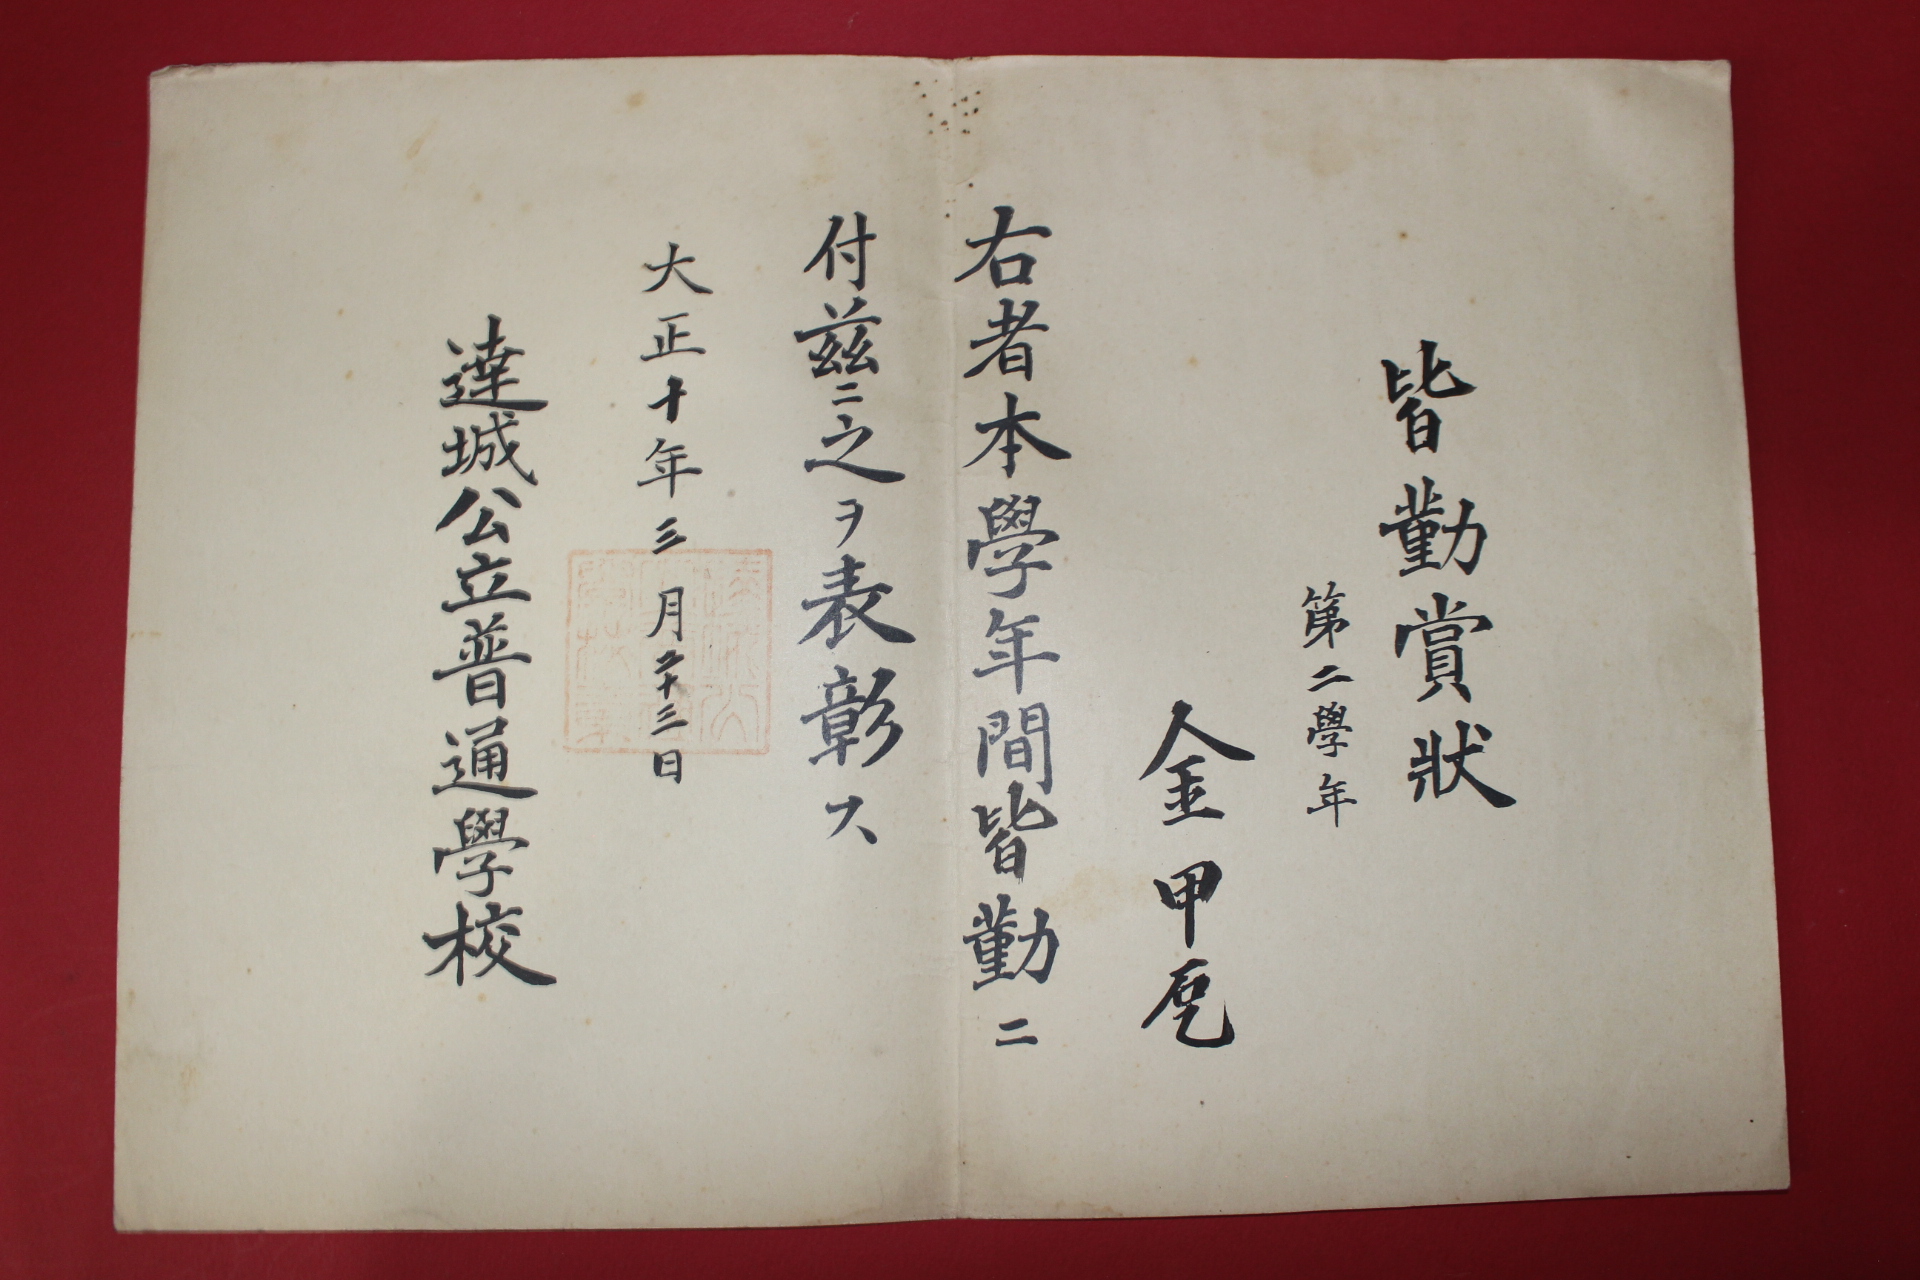 皆勤賞狀
第二學年
金甲乭
右者本學年間皆勤ニ
付茲ニ之ヲ表彰ス
大正十年三月二十三日
達城公立普通學校